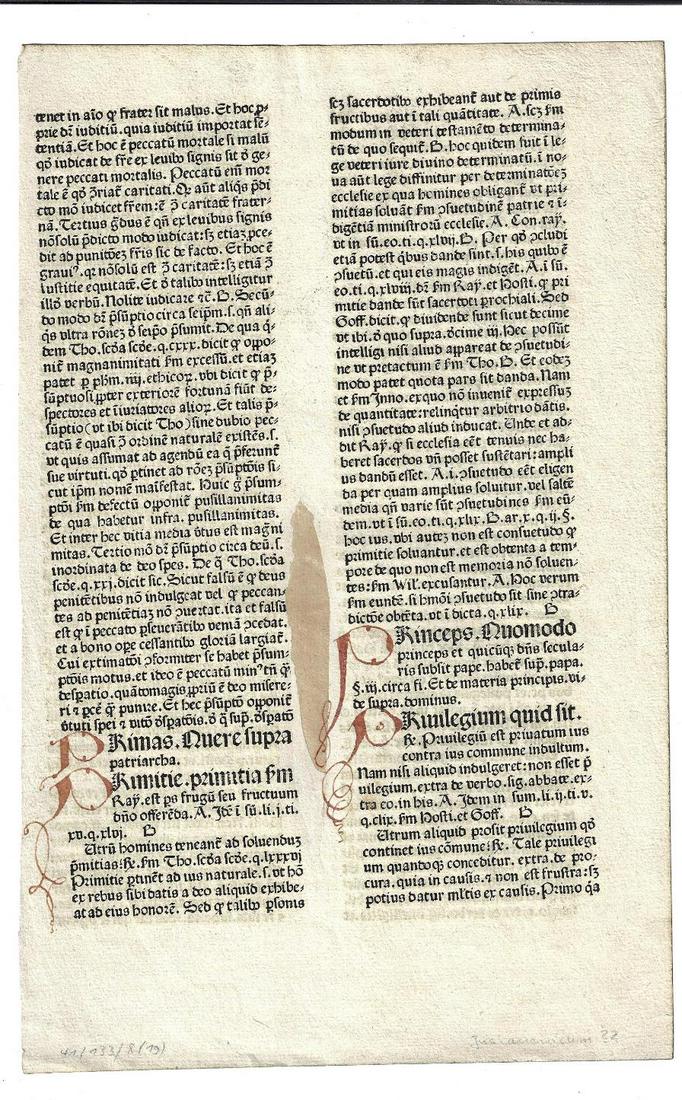 tenet in aĩo qꝫ frater sit malus. Et hoc ꝓ-
prie dr̃ iuditiũ. quia iuditiũ importat sẽ-
tentiã. Et hoc ẽ peccatũ mortale si malũ
qð iudicat de fr̃e ex leuibꝰ signis sit ð ge-
nere peccati mortalis. Peccatũ em̃ mor
tale ẽ qð ꝯ̃riat᷑ caritati. Qꝛ aũt aliq̃s p̃di
cto mõ iudicet fr̃em: ẽ ꝯ̃ caritatẽ frater-
nã. Tertius g̃dus ẽ qñ ex leuibus signis
nõsolũ p̃dicto modo iudicat: sꝫ etiaꝫ ꝓce-
dit ad punitõeꝫ fr̃is sic de facto. Et hoc ẽ
grauiꝰ. qꝛ nõsolũ est ꝯ̃ caritatẽ: sꝫ etiã ꝯ̃
iustitie equitatẽ. Et ð talibꝰ intelligitur
illð verbũ. Nolite iudicare ⁊c̃. B. Secũ-
do modo dr̃ p̃suptio circa seip̃m. s. qñ ali-
q̃s vltra rõneꝫ ð seip̃o p̃sumit. De qua q̃-
dem Tho. scða scðe. q. cxxx. dicit qꝫ oppo-
nit᷑ magnanimitati ẜm excessũ. et etiaꝫ
patet ꝑ ph̃m. iiij. ethicoꝝ. vbi dicit qꝫ p̃-
sũptuosi ꝓpter exteriorẽ fortunã fiũt de-
spectores et ĩiuriatores alioꝝ. Et talis p̃-
sũptio (vt ibi dicit Tho) sine dubio pec-
catũ ẽ quasi ꝯ̃ ordinẽ naturalẽ existẽs. s.
vt quis assumat ad agendũ ea q̃ p̃ferunt᷑
sue virtuti. qð ꝑtinet ad rõeꝫ p̃sũptõis si-
cut ip̃m nomẽ maĩfestat. Huic g̃ p̃sum-
ptõi ẜm defectũ opponit᷑ pusillanimitas
de qua habetur infra. pusillanimitas.
Et inter hec vitia media v̾tus est magni
mitas. Tertio mõ dr̃ p̃sũptio circa deũ. s.
inordinata de deo spes. De q̃ Tho. scða
scðe. q. xxj. dicit sic. Sicut falsũ ẽ qꝫ deus
penitẽtibus nõ indulgeat vel qꝫ peccan-
tes ad penitẽtiaꝫ nõ ꝯuertat. ita et falsũ
est qꝫ ĩ peccato ꝑseuerãtibꝰ veniã ꝯcedat.
et a bono ope cessantibꝰ gloriã largiat᷑.
Cui extimatõi ꝯformiter se habet p̃sum-
ptõis motus. et ideo ẽ peccatũ minꝰ tñ qꝫ
desꝑatio. quãtomagis ꝓpriũ ẽ deo misere-
ri ⁊ ꝑcẽ qꝫ punire. Et hec p̃sũptõ opponit᷑
v̾tuti spei ⁊ vitõ ðsꝑatõis. ð q̃ sup̃. ðsꝑatõ
PRimas. Quere supra
patriarcha.
PRimitie. primitia ẜm
Ray. est ps frugũ seu fructuum
dño offerẽda. A. Idẽ ĩ sũ. li. j. ti.
xv. q. xlvj. B
Utrũ homines teneant᷑ ad soluenduꝫ
p̃mitias: ℞. ẜm Tho. scða scðe. q. lxxxvj
Primitie ꝑtinẽt ad ius naturale. s. vt hõ
ex rebus sibi datis a deo aliquid exhibe-
at ad eius honorẽ. Sed qꝫ talibꝰ ꝑsonis
scꝫ sacerdotibꝰ exhibeant᷑ aut de primis
fructibus aut ĩ tali quãtitate. A. scꝫ ẜm
modum in veteri testamẽto determina-
tũ de quo sequit᷑. B. hoc quidem fuit ĩ le-
ge veteri iure diuino determinatũ. ĩ no-
ua aũt lege diffinitur per determinatõeꝫ
ecclesie ex qua homines obligant᷑ vt pri-
mitias soluãt ẜm ꝯsuetudinẽ patrie ⁊ ĩ-
digẽtiã ministroꝝ ecclesie. A. Con. ray.
vt in sũ. eo. ti. q. xlvij. B. Per qð ꝯcludi
etiã potest q̃bus dande sint. s. his quibꝰ ẽ
ꝯsuetũ. et qui eis magis indigẽt. A. ĩ sũ.
eo. ti. q. xlviij. dr̃ ẜm Ray. et Hosti. qꝫ pri
mitie dande sũt sacerdoti ꝑrochiali. Sed
Goff. dicit. qꝫ diuidende sunt sicut decime
vt ibi. ð quo supra. ðcime iij. Hec possũt
intelligi nisi aliud appareat de ꝯsuetudi-
ne vt pretactum ẽ ẜm Tho. B. Et eodeꝫ
modo patet quota pars sit danda. Nam
et ẜm Inno. ex quo nõ inuenit᷑ expressuꝫ
de quantitate: relinq̃tur arbitrio dãtis.
nisi ꝯsuetudo aliud inducat. Unde et ad-
dit Ray. qꝫ si ecclesia eẽt tenuis nec ha-
beret sacerdos vñ posset sustẽtari: ampli
us dandũ esset. A. i. ꝯsuetudo eẽt eligen
da per quam amplius soluitur. vel saltẽ
media qñ varie sũt ꝯsuetudines ẜm eũ-
dem. vt ĩ sũ. eo. ti. q. xlix. B. ar. x. q. ij. §.
hoc ius. vbi autez non est consuetudo qꝫ
primitie soluantur. et est obtenta a tem-
pore de quo non est memoria nõ soluen-
tes: ẜm Wil. excusantur. A. Hoc verum
ẜm eundẽ. si hmõi ꝯsuetudo sit sine ꝯtra-
dictõe obtẽta. vt ĩ dicta. q. xlix. B
PRinceps. Quomodo
princeps et quicũqꝫ dñs secula-
ris subsit pape. habet᷑ sup̃. papa.
§. iij. circa fi. Et de materia principis. vi-
de supra. dominus.
PRiuilegium quid sit.
℞. Priuilegiũ est priuatum ius
contra ius commune indultum.
Nam nisi aliquid indulgeret: non esset p̃
uilegium. extra de verbo. sig. abbate. ex-
tra eo. in his. A. Idem in sum. li. ij. ti. v.
q. clix. ẜm Hosti. et Goff. B
Utrum aliquid prosit priuilegium qð
continet ius cõmune: ℞. Tale priuilegi
um quandoqꝫ conceditur. extra. de pro-
cura. quia in causis. ⁊ non est frustra: sꝫ
potius datur ml̃tis ex causis. Primo q̃a
41/133/8(19)